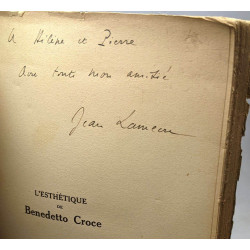 A Hélène et Pierre
avec toute mon amitié
Jean Lameere
L'ESTHÉTIQUE
DE
Benedetto Croce